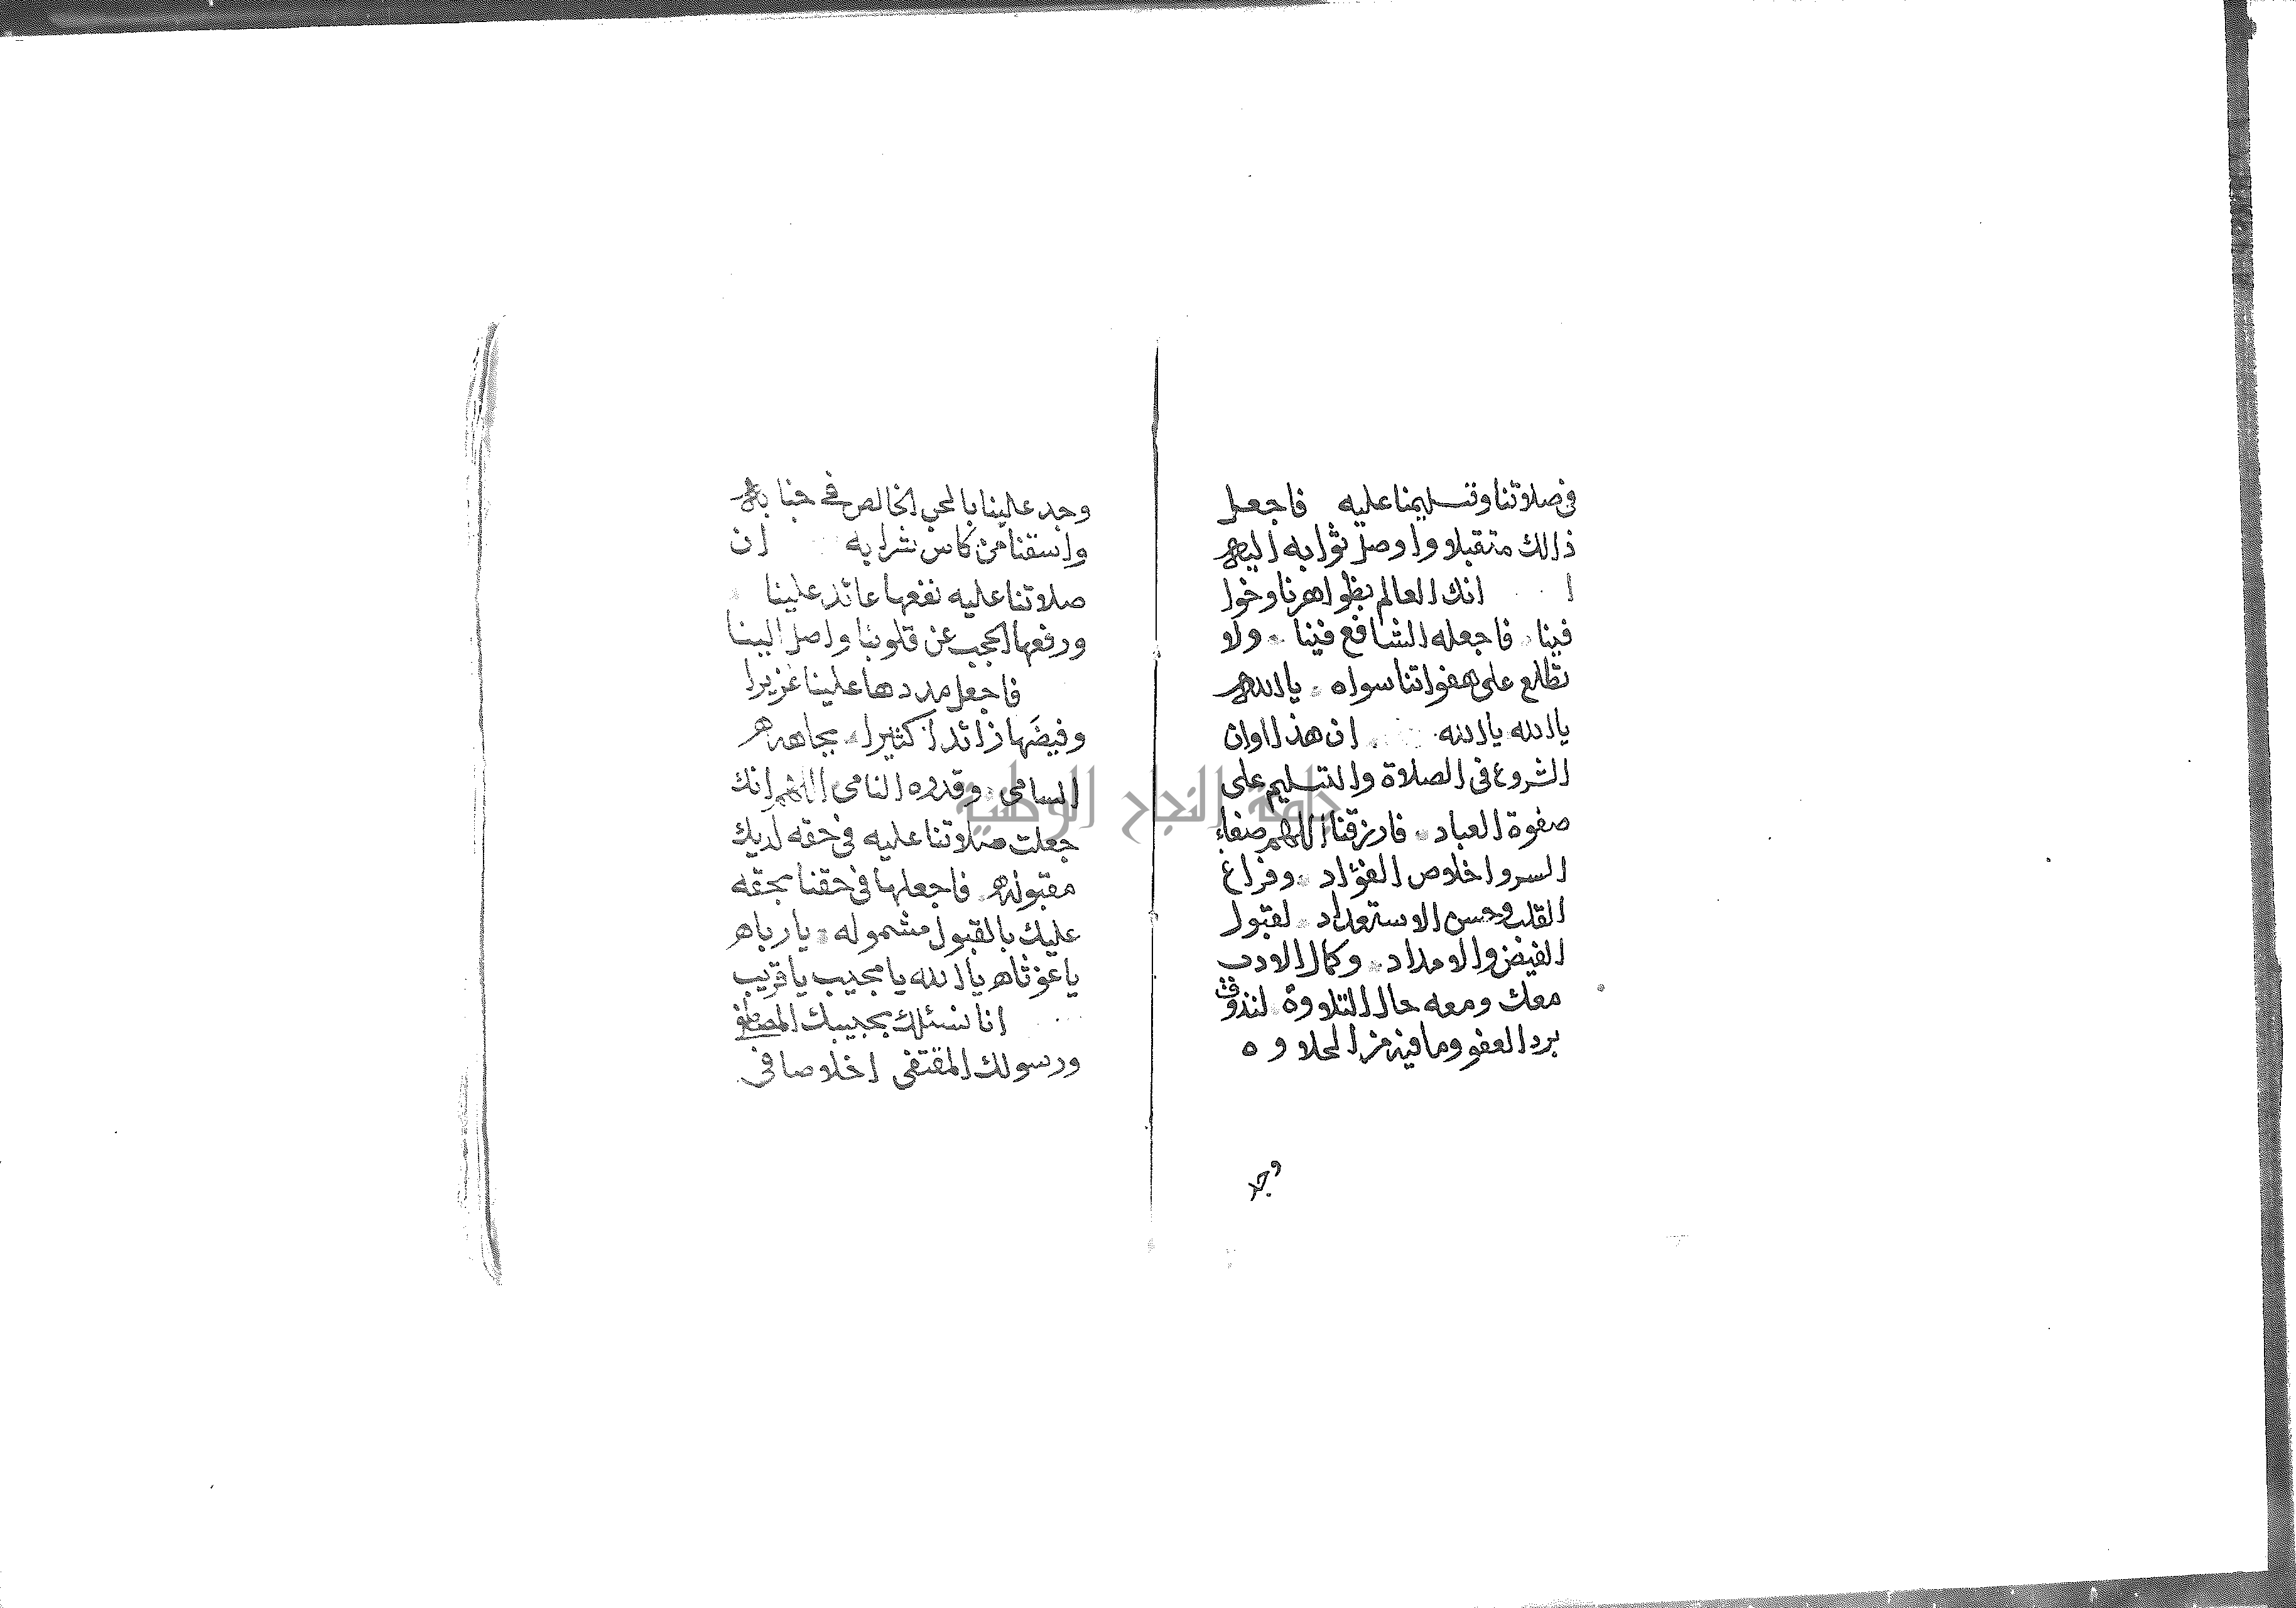 في صلاتنا وتسليمنا عليه فاجعل
ذالك متقبلا واوصل ثوابه اليه
ا انك العالم بظواهرنا وخوا
فينا فاجعله الشافع فينا ولا
تطلع على هفواتنا سواه يا الله
يا الله يا الله ان هذا اوان
الشروع في الصلاة والتسليم على
صفوة العباد فارزقنا اللهم صفاء
السر واخلاص الفؤاد وفراغ
القلب وحسن الاستعداد لقبول
الفيض والامداد وكمال الادب
معك ومعه حال التلاوة لنذوق
برد العفو وما فيه من الحلاوه
وجد
وجد علينا بالحب الخالص في جنابه
واسقنا من كاس شرابه ان
صلاتنا عليه نفعها عائد علينا
ورفعها الحجب عن قلوبنا واصل الينا
فاجعل مددها علينا غزيرا
وفيضها زائدا كثيرا بجاهه
السامي وقدره النامي اللهم انك
جعلت صلاتنا عليه في حقه لديك
مقبوله فاجعلها في حقنا بحقه
عليك بالقبول مشموله يا رباه
يا غوثاه يا الله يا مجيب يا قريب
انا نسئلك بحبيبك المصطفى
ورسولك المقتفى اخلاصا في
جامعة النجاح الوطنية